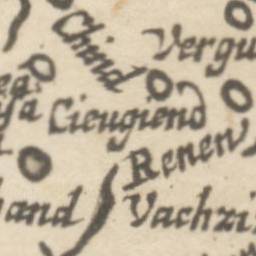 Chind
Vergu
ea
ya
Cieugiend
Renen
hand
Vachzi